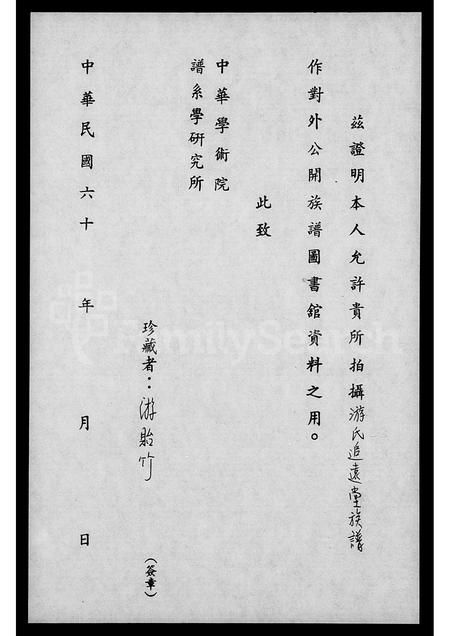 茲證明本人允許貴所拍攝游氏追遠堂族譜
作對外公開族譜圖書館資料之用。
此致
中華學術院
譜系學研究所
珍藏者：游貽竹
(簽章)
中華民國六十 年 月 日
FamilySearch